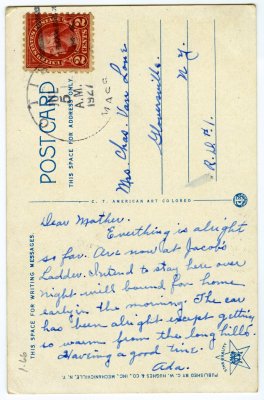 POST CARD
THIS SPACE FOR ADDRESS ONLY.
2 CENTS 2
5
A.M.
1927
MASS
Mrs. Chas Van Lone
N.Y.
R.D. #1.
C. T. AMERICAN ART COLORED
THIS SPACE FOR WRITING MESSAGES.
Dear Mother.
Everthing is alright
so far. Are now at Jacobs
Ladder. Intend to stay here over
night will bound for home
early in the morning. The car
has been alright except getting
so warm from the long hills.
Having a good time.
Ada.
PUBLISHED BY C. W. HUGHES & CO., INC., MECHANICVILLE, N. Y.
1-66